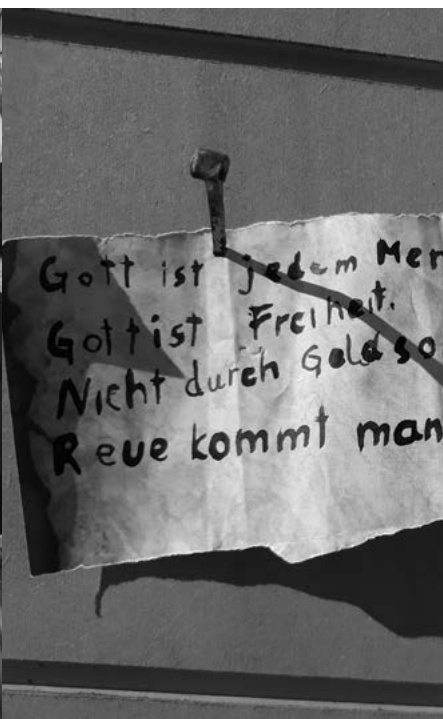 Gott ist jedem Mer
Gott ist Freiheit.
Nicht durch Geld so
Reue kommt man